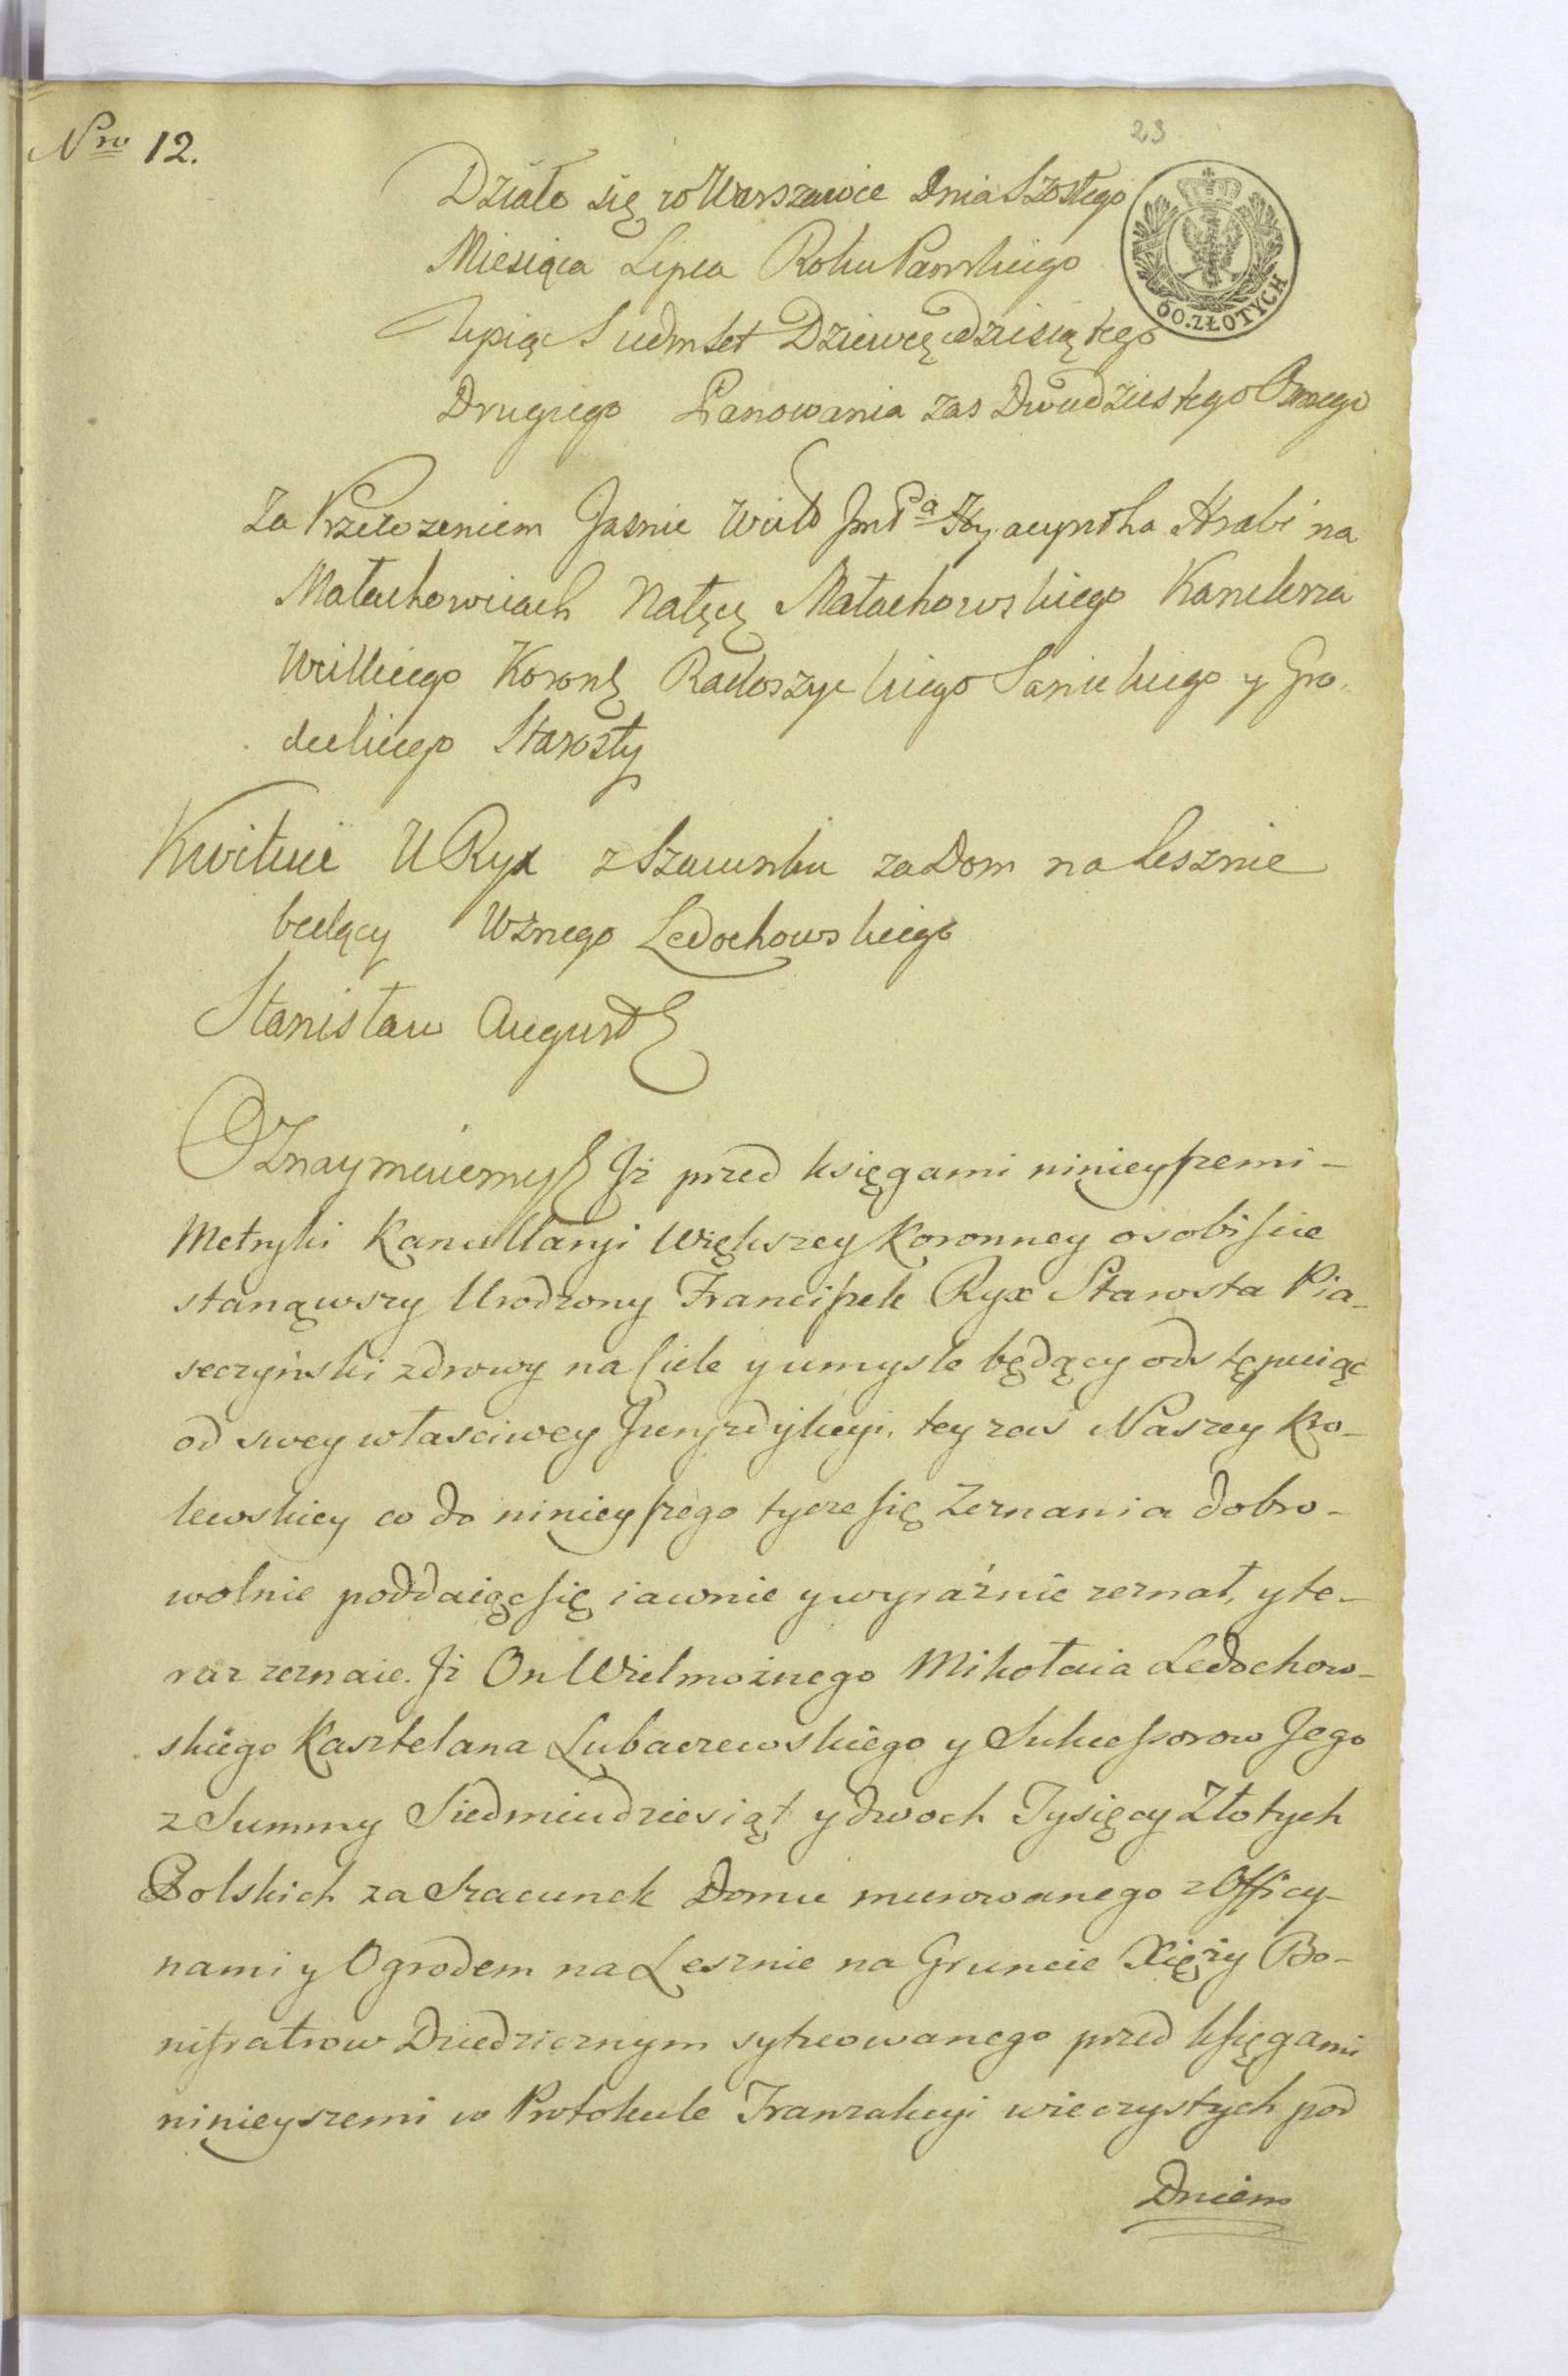 Nro 12.
23
Działo się w Warszawie Dnia Szostego
60. ZŁOTYCH
Miesiąca Lipca Roku Panskiego
Tysiąc Siedmset Dziewięcdziesiątego
Drugiego Panowania zas Dwudziestego Osmego
Za Przełozeniem Jasnie Wielo JmPa Hyacyntha Hrabi na
Małachowicach Nałęcz Małachowskiego Kanclerza
Wielkiego Koronn Radoszyckiego Sanickiego y Gro-
deckiego Starosty
Kwituie U Ryx z Szacunku za Dom na Lesznie
będący Wznego Ledochowskiego
Stanisław August
Oznaymuiemy Jż przed księgami ninieyszemi -
Metryki Kancellaryi Większey Koronney osobiscie
stanąwszy Urodzony Franciszek Ryx Starosta Pia-
seczyński zdrowy na ciele y umysle będący odstępuiąc
od swey własciwey Juryzdykcyi, tey zaś Naszey Kro-
lewskiey co do ninieyszego tycze się Zeznania dobro-
wolnie poddaiąc się iawnie y wyraźnie zeznał, y te-
raz zeznaie. Jż On Wielmożnego Mikołaia Ledochow-
skiego Kasztelana Lubaczewskiego y Sukcessorow Jego
z Summy Siedmiudziesiąt y dwoch Tysięcy Złotych
Polskich za Szacunek Domu murowanego z Officy-
nami y Ogrodem na Lesznie na Gruncie Xięży Bo-
nifratrow Dziedzicznym sytuowanego przed księgami
ninieyszemi w Protokule Tranzakcyi wieczystych pod
Dniem